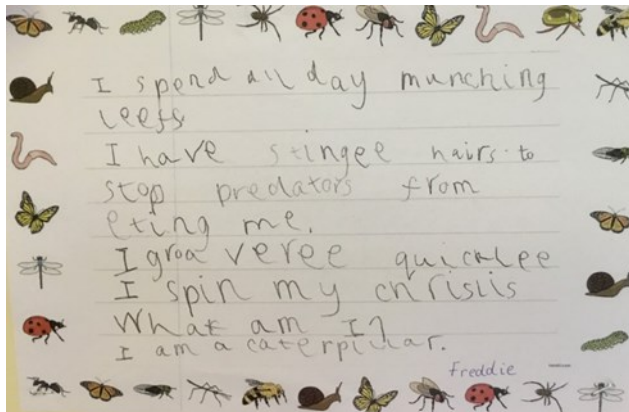 I spend all day munching
leefs
I have stingee hairs to
stop predators from
eting me.
I groa veree quicklee
I spin my chrisiis
What am I?
I am a caterpillar.
Freddie